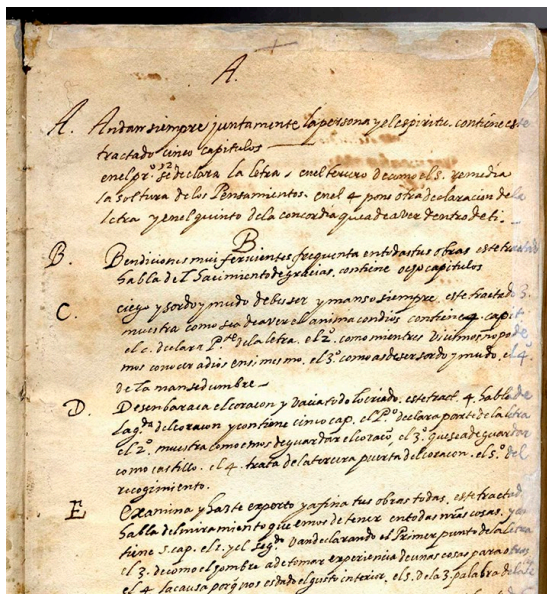 A.
A. Andar siempre juntamente la persona y el espiritu. contiene este
tractado cinco capitulos
enel pr.º y 2º se declara la letra, en el tercero de como el s. remedia
la soltura de los Pensamientos. en el 4 pone otra declaracion de la
letra y en el quinto de la concordia que a de aver dentro de ti.
B
B. Bendiciones mui fervientes frequenta en todas tus obras este tractado
habla del hacimiento de gracias. contiene ocho capitulos
C. ciego y sordo y mudo debes ser y manso siempre. este tractado 3.
muestra como se a de aver el anima con dios contiene 4. capit
el 1. declara Pte de la letra. el 2º. como mientras vivimos no pode
mos conocer a dios en si mesmo. el 3º como as de ser sordo y mudo. el 4º
de la mansedumbre
D. Desenbaraca el coracon y Vacia todo lo criado. este tract. 4. habla de
la gda del coracon y contiene cinco cap. el Pº declara parte de la letra
el 2º. muestra como emos de guardar el coracō. el 3º que se a de guardar
como castillo. el 4. trata de la tercera puerta del coracon. el 5º del
recogimiento.
E Examina y hazte experto y afina tus obras todas. este tractado
habla del miramiento que emos de tener en todas nrās cosas. y con
tiene 5. cap. el 1. y el segdo van declarando el Primer punto de la letra
el 3. de como el hombre a de tomar experiencia de unas cosas para otras
el 4. la causa porq nos es dado el gusto interior. el 5. de la 3. palabra de la